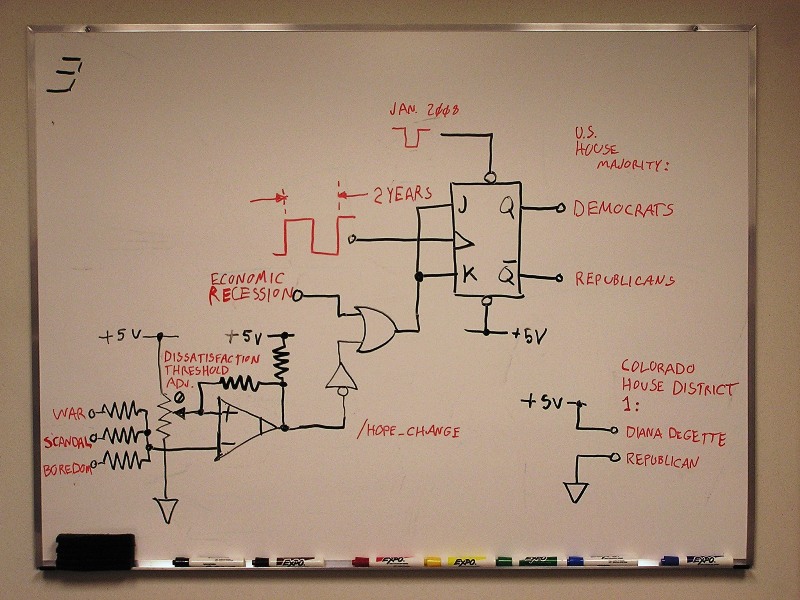 JAN. 2008
U.S.
HOUSE
MAJORITY:
2 YEARS
J Q
DEMOCRATS
K Q̅
REPUBLICANS
ECONOMIC
RECESSION
+5V
+5V
+5V
DISSATISFACTION
THRESHOLD
ADV.
+
−
WAR
SCANDAL
BOREDOM
/HOPE_CHANGE
COLORADO
HOUSE DISTRICT
1:
+5V
DIANA DEGETTE
REPUBLICAN
EXPO
EXPO
EXPO
EXPO
EXPO
EXPO